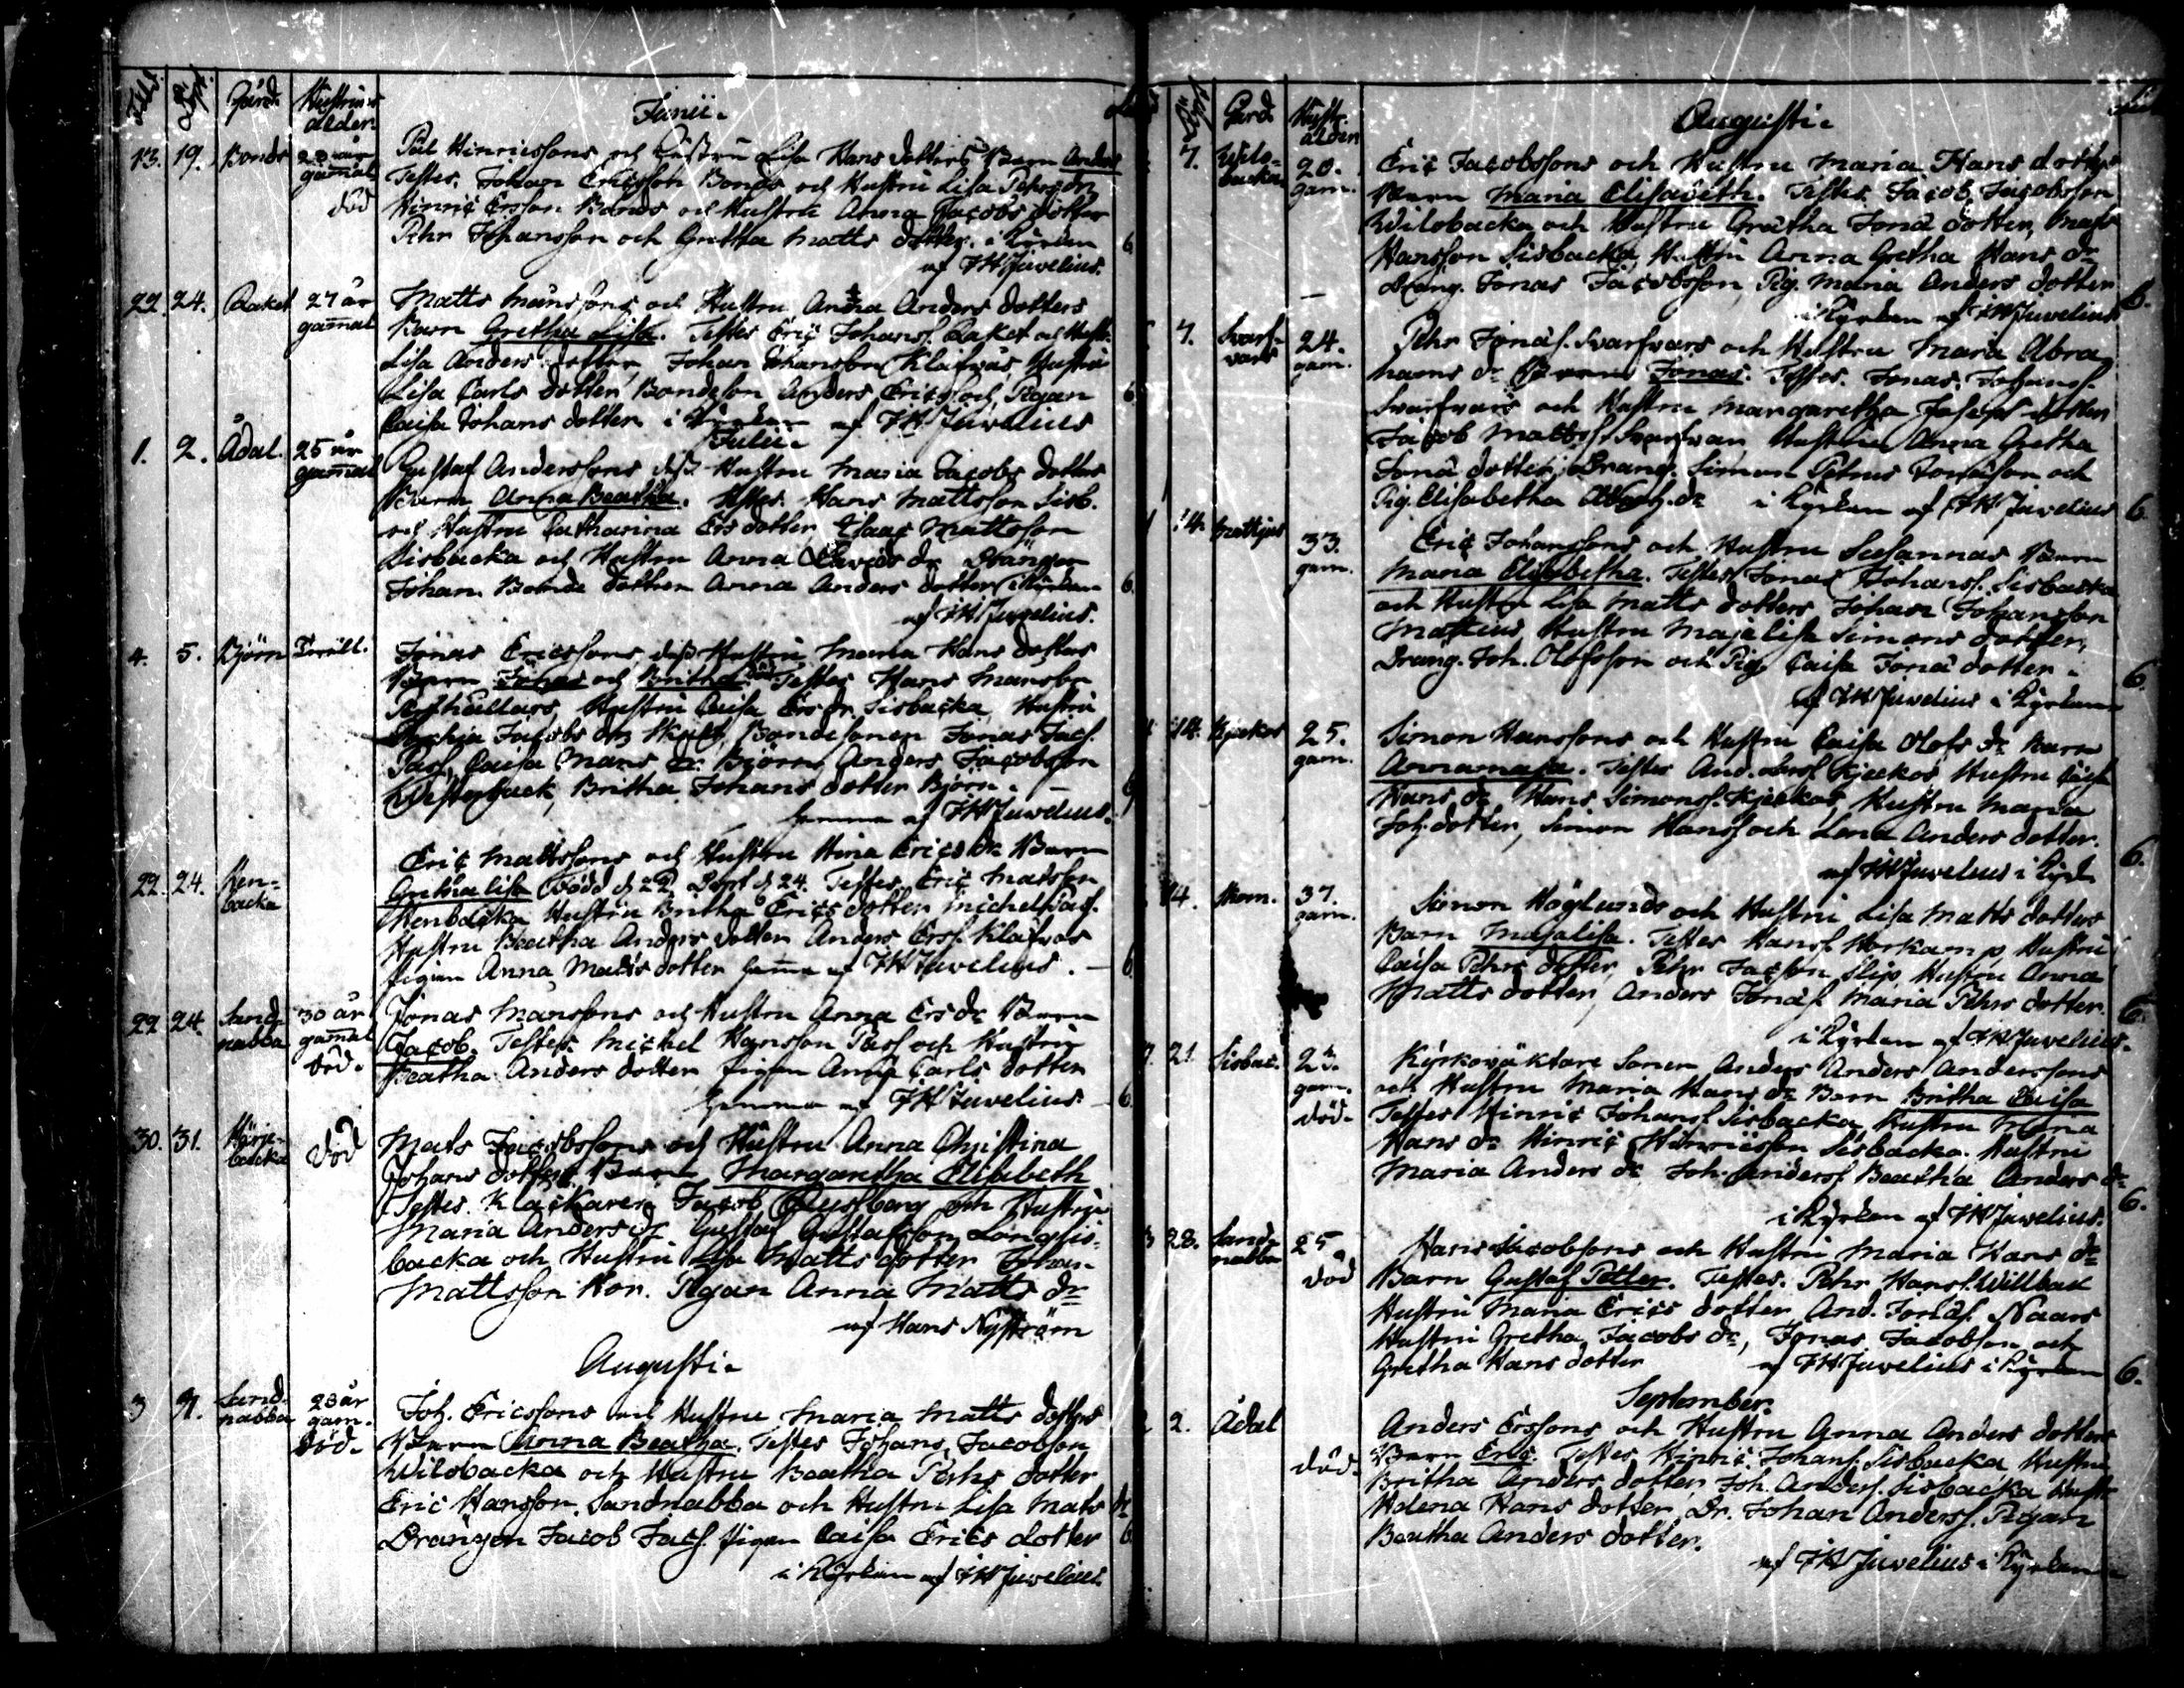 Gård. Hustruns ålder
Junii.
13. 19. Bonds 23 år gamal död
Påls Hinricssons och Hustru Lisa Hans dotters Barn Anders
Testes. Johan Ericsson Bonds och Hustru Lisa Pehrs dr
Hinric Ersson Bonds och Hustru Anna Jacobs dotter
Pehr Johansson och Gretha Matts dotter. i Kyrkan 6
af FHJuvelius.
22. 24. Raket 27 år gamal
Matts Månssons och Hustru Anna Anders dotters
Barn Gretha Lisa. Testes Eric Johanss. Raket och Hustr.
Lisa Anders dotter Johan Johansson Klafwus Hustru
Lisa Carls dotter Bondeson Anders Ericss och Pigan 6
Caisa Johans dotter i Kyrkan af FHJuvelius
Julii.
1. 2. Ådal. 25 år gamal
Gustaf Anderssons dess Hustru Maria Jacobs dotters
Barn Anna Beatha. Testes. Hans Mattsson Sisb.
och Hustru Catharina Ers dotter, Isaac Mattsson
Sisbacka och Hustru Anna Davids dr Drängen
Johan Bonde dottren Anna Anders dotter i Kyrkan 6
af FHJuvelius.
4. 5. Björn Tvill.
Jonas Ericssons dess Hustru Maria Hans dotters
Barn Johan och Britha. Testes Hans Mansson
Hustru Caisa Ers dr. Sisbacka, Hustru
Jacobs dr Bondesonen Jonas Jacs.
Pass, Caisa Mans dr. Björn Anders Jacobsson
Westerback, Britha Johans dotter Björn. 6
hemma af FHJuvelius.
22. 24. Kenbacka
Eric Mattssons och Hustru Stina Erics dr Barn
Gretha Lisa född d. 22 Döpt d. 24. Testes Eric Matsson
Kenbacka Hustru Britha Erics dotter, Michel Pass.
Hustru Beatha Anders dotter Anders Erss. Klafvas
Pigan Anna Matts dotter hema af FHJuvelius. 6
22 24. Sandnabba 30 år gamal död.
Jonas Manssons och Hustru Anna Ers dr Barn
Jacob. Testes Michel Hansson Pass och Hustru
Beatha Anders dotter Pigan Anna Carls dotter
hemma af FHJuvelius. 6.
30. 31. Härjebacka död
Mats Jacobssons och Hustru Anna Christina
Johans dotters Barn Margaretha Elisabeth
Testes. Klackaren Jacob och Hustru
Maria Anders dr Gustaf Gustafsson Långsisbacka
och Hustru Lisa Matts dotter Johan
Mattsson Kor. Pigan Anna Matts dr
af Hans Nyström
Augusti.
3 4. Sandnabba 23 år gam. död.
Joh. Ericssons och Hustru Maria Matts dotters
Barn Anna Beatha. Testes Johans Jacobsson
Wilobacka och Hustru Beatha Pehrs dotter
Eric Hansson Sandnabba och Hustru Lisa Mats dr
Drängen Jacob Jacs. Pigan Caisa Erics dotter 6
i Kyrkan af FHJuvelius.
Gård Hustr. ålder
Augusti.
7. Wilobacka 20. gam.
Eric Jacobssons och Hustru Maria Hans dotters
Barn Maria Elisabeth. Testes Jacob Jacobsson
Wilobacka och Hustru Gretha Jona dotter, Mats
Hansson Sisbacka Hustru Anna Gretha Hans dr
Dräng. Jonas Jacobsson, Pig. Maria Anders dotter
i Kyrkan af FHJuvelius 6.
7. Svarfvars 24. gam.
Pehr Jonass. Svarfvars och Hustru Maria Abrahams
dr Barn Jonas. Testes. Jonas Johanss.
Svarfvars och Hustru Margaretha Joseps dotter
Jacob Mattss. Svarfvar Hustru Anna Gretha
Jona dotter, Dräng. Simon Petrus Jonasson och
Pig. Elisabetha dr i Kyrkan af FHJuvelius 6.
14. Mattjus 33. gam.
Eric Johanssons och Hustru Susannas Barn
Maria Elisabetha. Testes Jonas Johanss. Sisbacka
och Hustru Lisa Matts dotters Johan Johansson
Mattius, Hustru Majalisa Simons dotter,
Dräng. Joh. Olofsson och Pig. Caisa Jona dotter.
af FHJuvelius i Kyrkan 6.
14. Kjeckos 25. gam.
Simon Hanssons och Hustru Caisa Olofs dr Barn
Annamaja. Testes And. Larss. Kjeckos Hustru Caisa
Hans dr Hans Simonss. Kjeckos, Hustru Maria
Joh. dotter, Simon Hanss och Lena Anders dotter.
af FHJuvelius i Kyrk. 6.
14. Skorn. 37. gam.
Simon Höglunds och Hustru Lisa Matts dotters
Barn Majalisa. Testes Hanss. Horkamp, Hustru
Caisa Pehrs dotter, Pehr Jacsson Slip, Hustru Anna
Matts dotter, Anders Jonass. Maria Pehrs dotter.
i Kyrkan af FHJuvelius. 6.
21. Sisbac. 23. gam. död.
Kyrkowäktare Sonen Anders Anders Anderssons
och Hustru Maria Hans dr Barn Britha Caisa
Testes Hinric Johanss. Sisbacka, Hustru Maria
Hans dr Hinric Hinricsson Sisbacka. Hustru
Maria Anders dr Joh. Anderss. Beatha Anders dr
i Kyrkan af FHJuvelius. 6.
28. Sandnabba 25 död
Hans Jacobssons och Hustru Maria Hans dr
Barn Gustaf Petter. Testes. Pehr Hanss. Willback
Hustru Maria Erics dotter, And. Jonass. Naars
Hustru Gretha Jacobs dr, Jonas Jacobsson och
Gretha Hans dotter af FHJuvelius i Kyrkan 6.
September.
2. Ådal död.
Anders Erssons och Hustru Anna Anders dotters
Barn Eric. Testes Hinric Johanss. Sisbacka Hustru
Britha Anders dotter, Joh. Anderss. Sisbacka Hustr.
Helena Hans dotter, Dr. Johan Anderss. Pigan
Beatha Anders dotter.
af FHJuvelius i Kyrkan